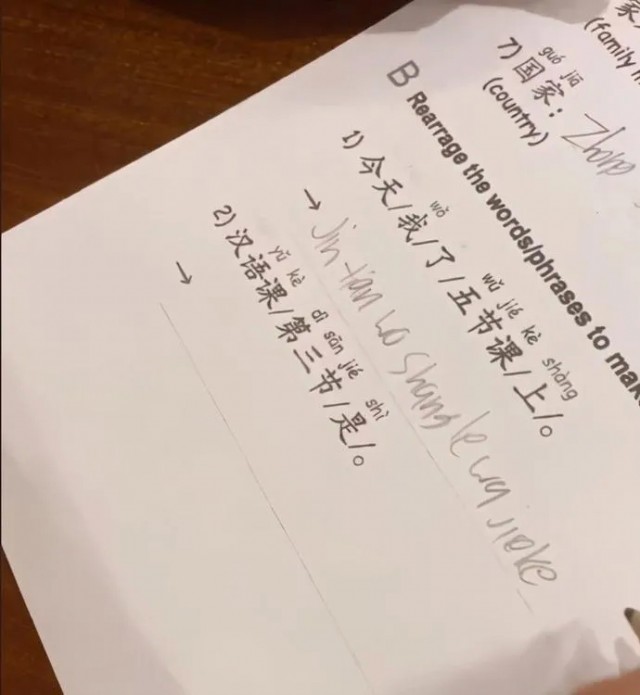 家
(family n
guó jiā
7) 国家: Zhong
(country)
B Rearrage the words/phrases to mak
wǒ wǔ jié kè shàng
1) 今天/我/了/五节课/上/。
→ Jin tian wo shang le wu jie ke
yǔ kè dì sān jié shì
2) 汉语课/第三节/是/。
→